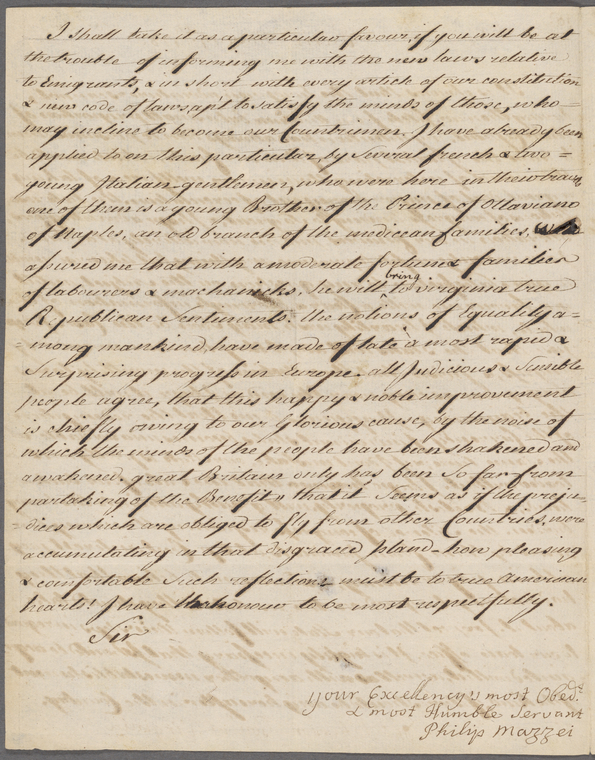 I shall take it as a particular favour, if you will be at
the trouble of informing me with the new laws relative
to Emigrants, & in short with every article of our constitution
& new code of laws apt to satisfy the minds of those, who
may incline to become our Countrimen. I have already been
applied to on this particular by several french & two =
young Italian gentlemen, who were here in their travels
one of them is a young Brother of the Prince of Ottaviano
of Naples, an old branch of the medicean families, who
assured me that with a moderate fortune & families
of labourers & machanicks, he will bring to virginia true
Republican Sentiments. The notions of Equality a=
=mong mankind have made of late a most rapid &
Surprising progress in Europe. all Judicious & Sensible
people agree, that this happy & noble improvement
is chiefly owing to our Glorious cause, by the noise of
which the minds of the people have been shakened and
awakened. great Britain only has been so far from
partaking of the Benefit, that it seems as if the preju=
=dices which are obliged to fly from other Countries, were
accumulating in that disgraced Island - how pleasing
& comfortable such reflections must be to true American
hearts! I have the honour to be most respectfully.
Sir
your Excellency's most Obed.t
& most Humble Servant
Philip Mazzei